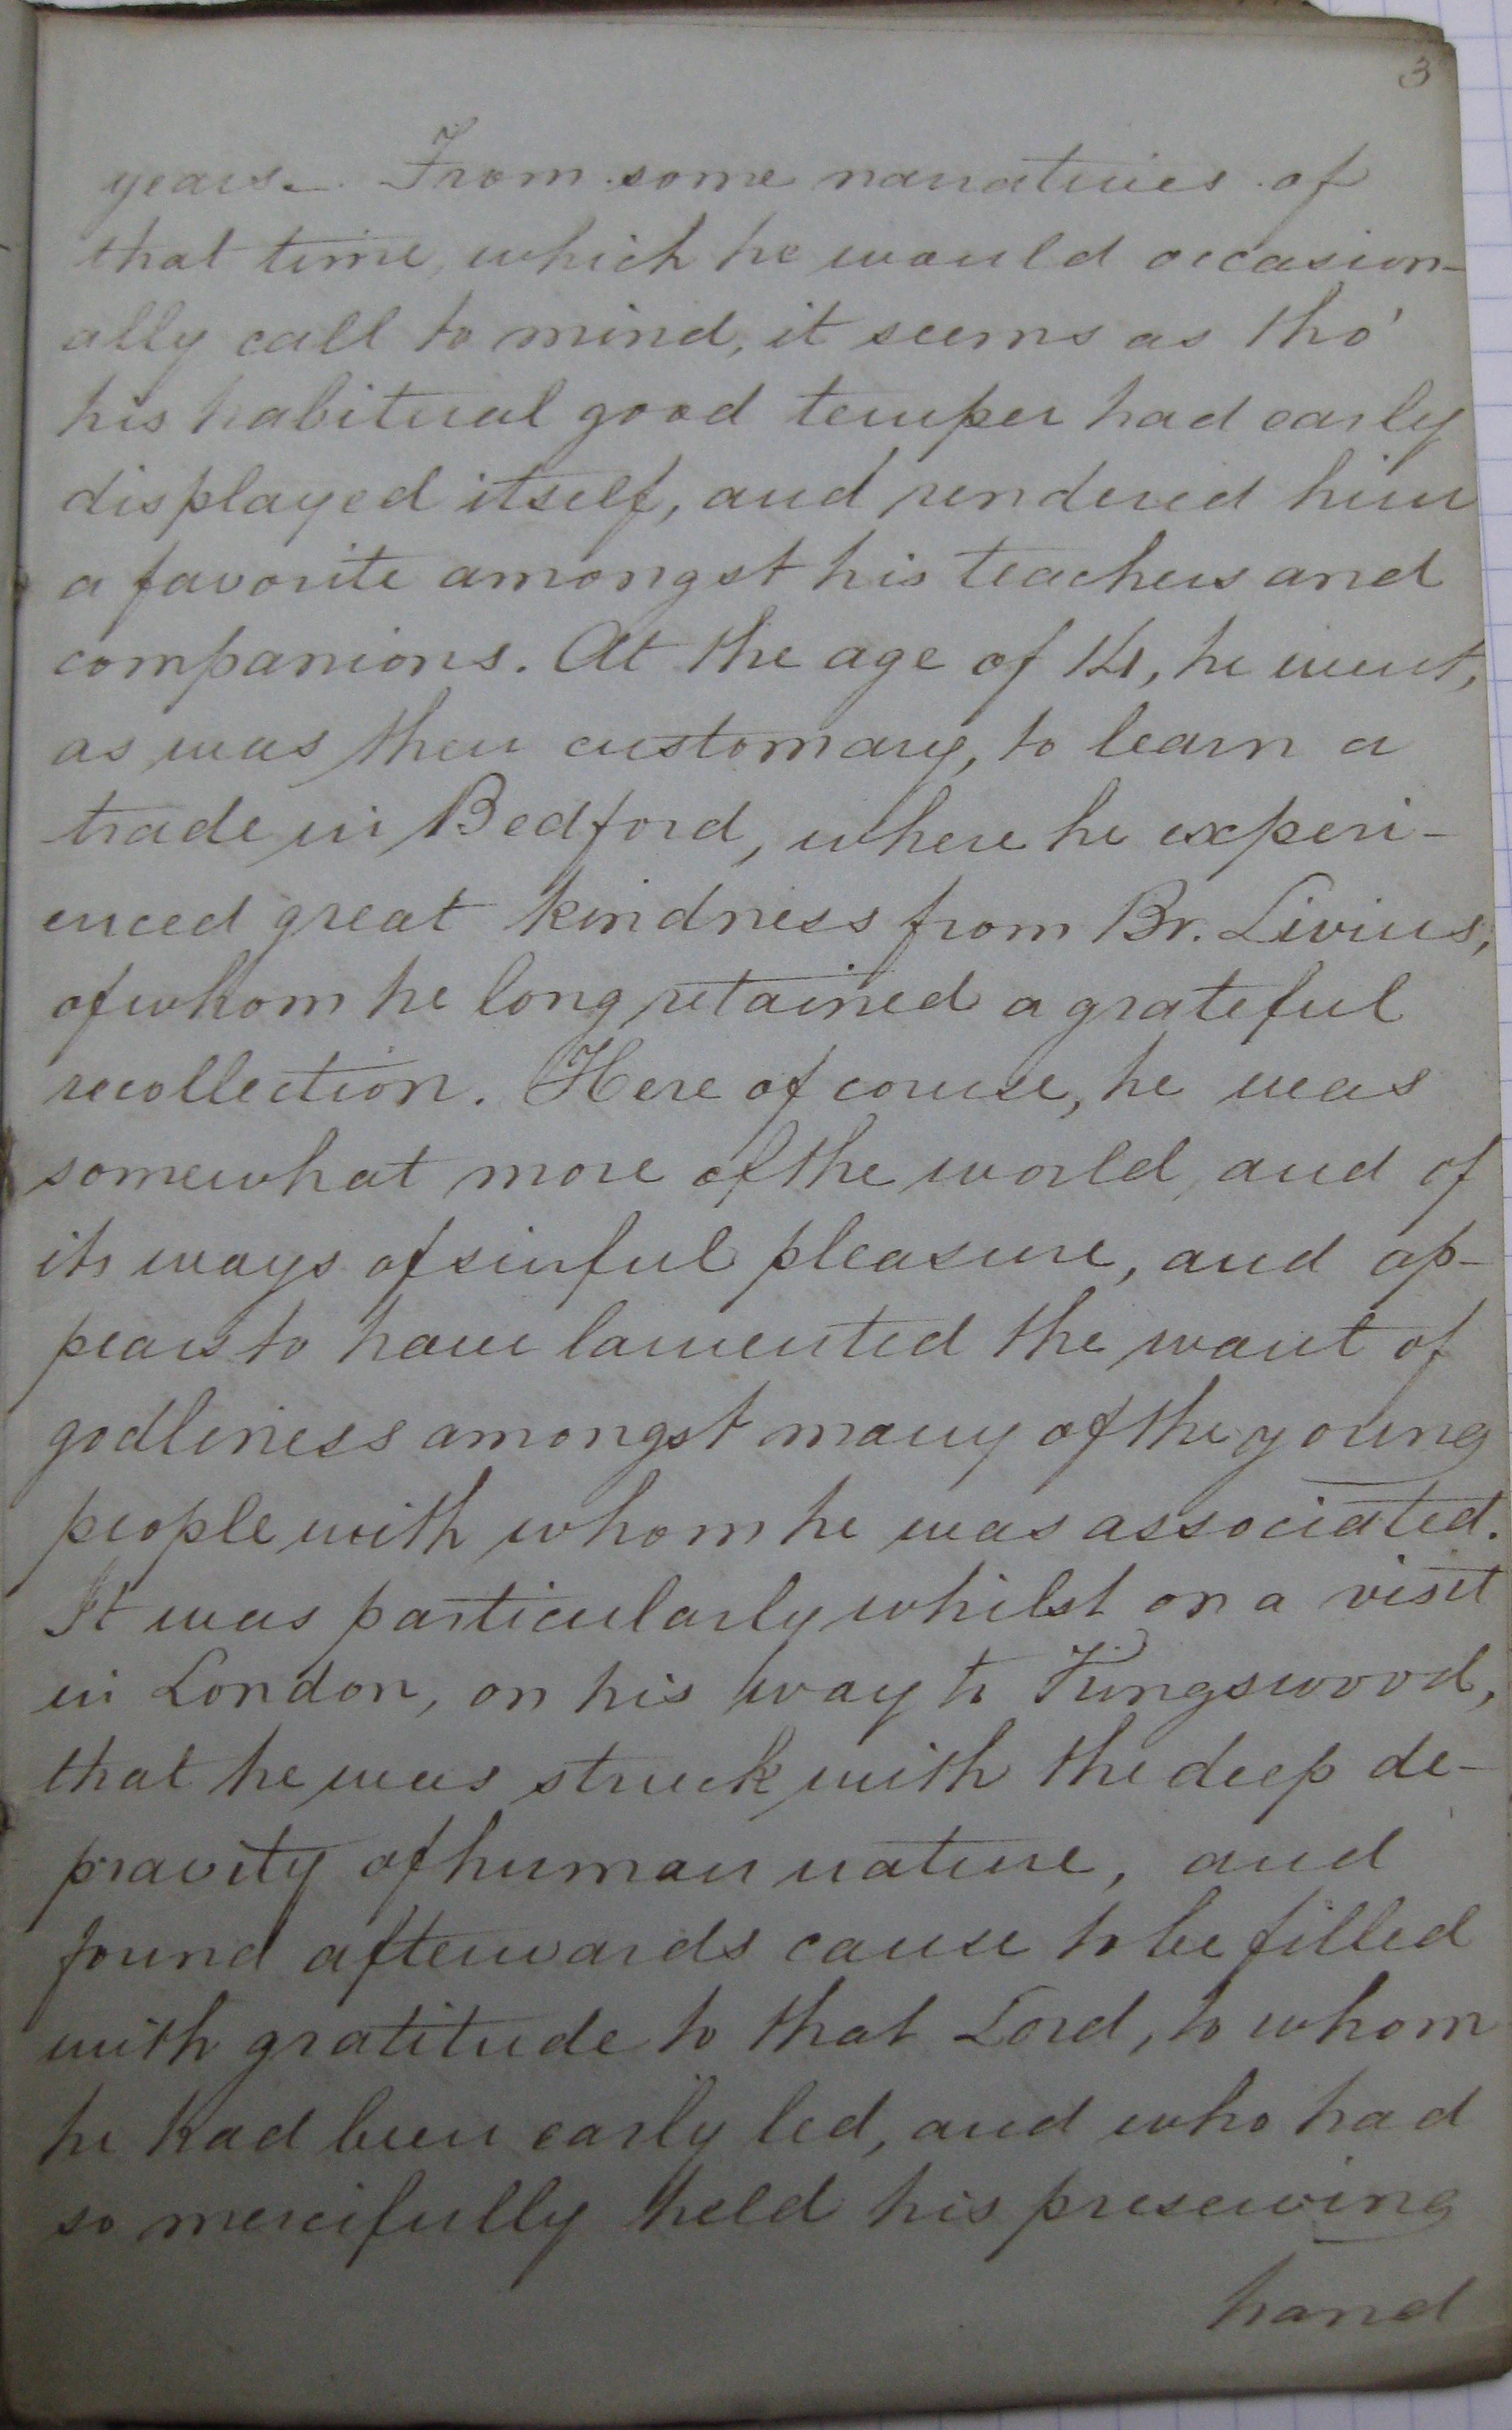 3
years. From some narratives of
that time, which he would occasion-
ally call to mind, it seems as tho'
his habitual good temper had early
displayed itself, and rendered him
a favorite amongst his teachers and
companions. At the age of 14, he went,
as was then customary, to learn a
trade in Bedford, where he experi-
enced great kindness from Br. Livius,
of whom he long retained a grateful
recollection. Here of course, he was
somewhat more of the world, and of
its ways of sinful pleasure, and ap-
pears to have lamented the want of
godliness amongst many of the young
people with whom he was associated.
It was particularly whilst on a visit
in London, on his way to Kingswood,
that he was struck with the deep de-
pravity of human nature, and
found afterwards cause to be filled
with gratitude to that Lord, to whom
he had been early led, and who had
so mercifully held his preserving
hand